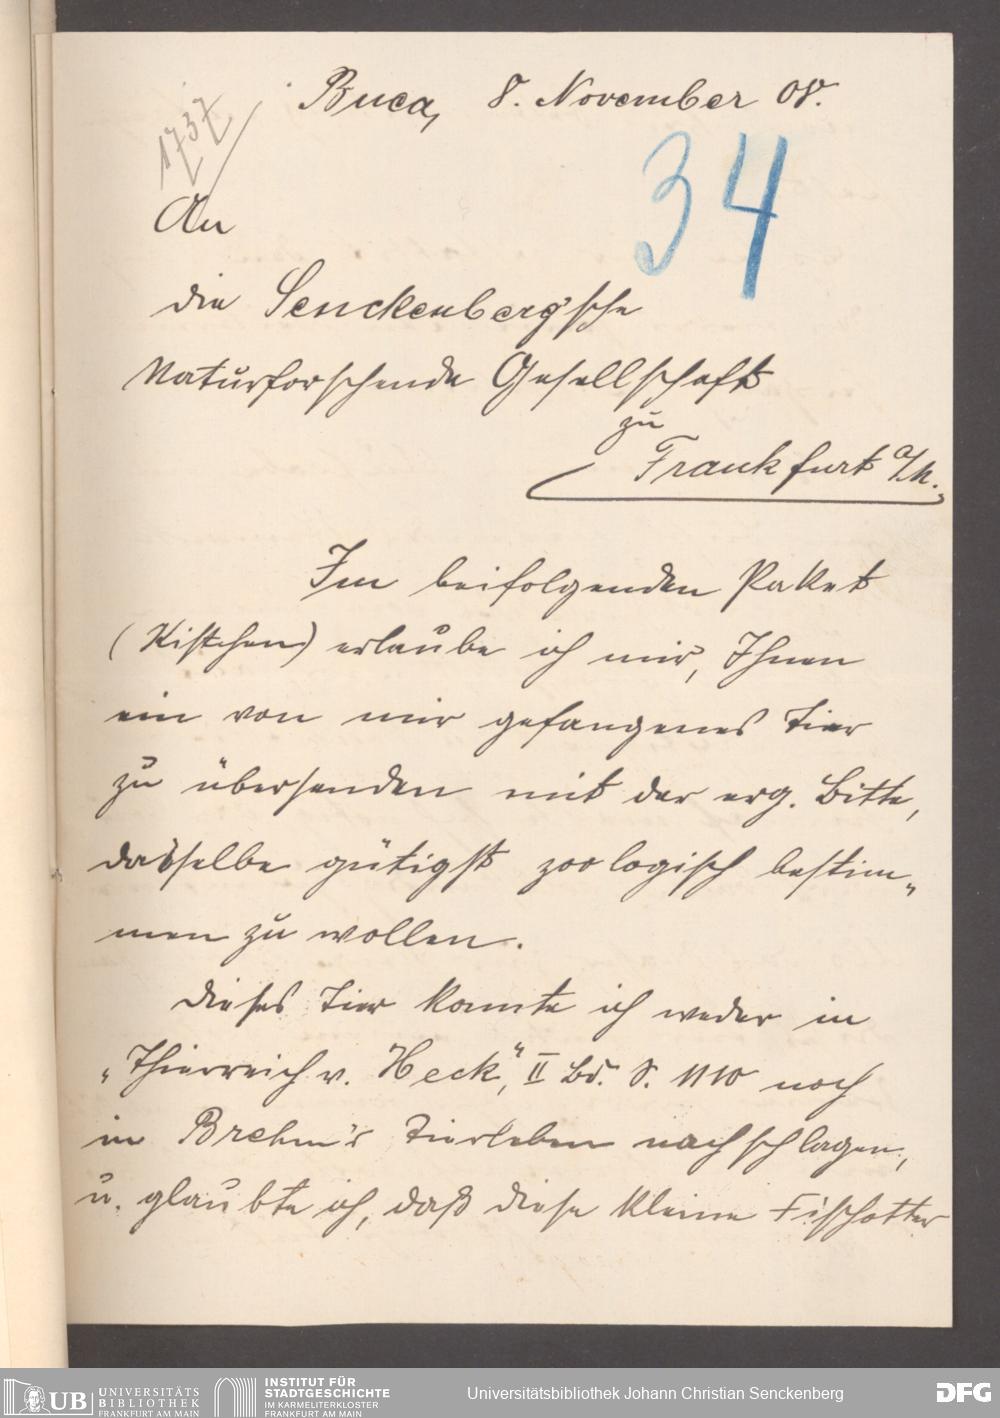 Buea, 8. November 08.
1737
34
An
die Senckenberg'sche
Naturforschende Gesellschaft
zu
Frankfurt a/M.
Im beifolgenden Paket
(Kistchen) erlaube ich mir, Ihnen
ein von mir gefangenes Tier
zu übersenden mit der erg. Bitte,
dasselbe gütigst zoologisch bestim-
men zu wollen.
Dieses Tier konnte ich weder in
„Thierreich v. Heck", II Bd. S. 1110 noch
in Brehm's Tierleben nachschlagen,
u. glaubte ich, daß diese kleine Fischotter
UB UNIVERSITÄTS
BIBLIOTHEK
FRANKFURT AM MAIN
INSTITUT FÜR
STADTGESCHICHTE
IM KARMELITERKLOSTER
FRANKFURT AM MAIN
Universitätsbibliothek Johann Christian Senckenberg
DFG